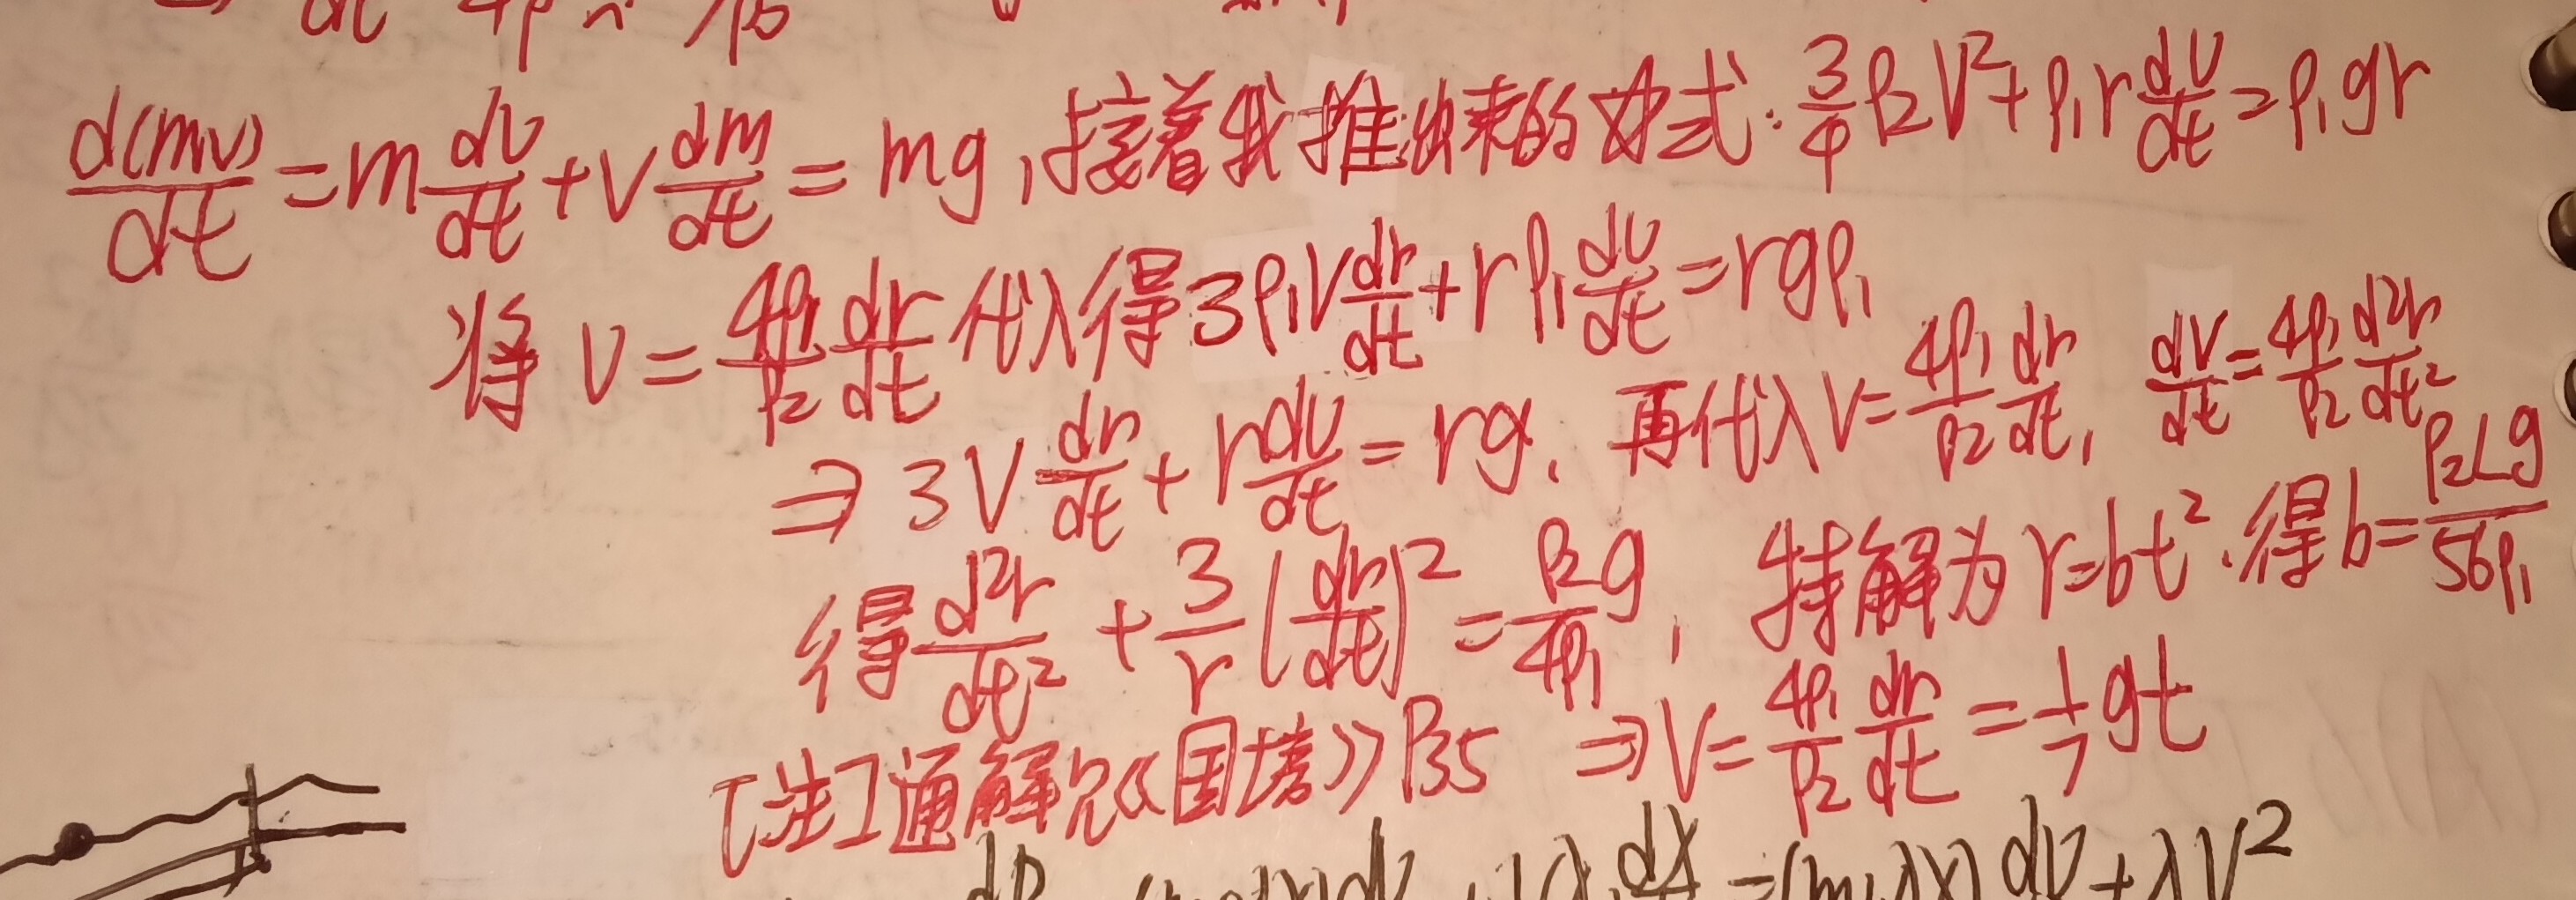 d(mv)/dt = m dv/dt + v dm/dt = mg, 接着我推出来的如式: 3/4 ρ₂V² + ρ₁r dv/dt = ρ₁gr
将 v = 4ρ₁/ρ₂ dr/dt 代入得 3ρ₁V dr/dt + rρ₁ dv/dt = rgρ₁
⇒ 3V dr/dt + r dv/dt = rg. 再代入 V = 4ρ₁/ρ₂ dr/dt, dV/dt = 4ρ₁/ρ₂ d²r/dt²
得 d²r/dt² + 3/r (dr/dt)² = ρ₂g/4ρ₁, 特解为 r=bt². 得 b = ρ₂g/56ρ₁
[注]通解见《国培》P35 ⇒ V = 4ρ₁/ρ₂ dr/dt = 1/7 gt
dx = (m+λx) dv + λV²